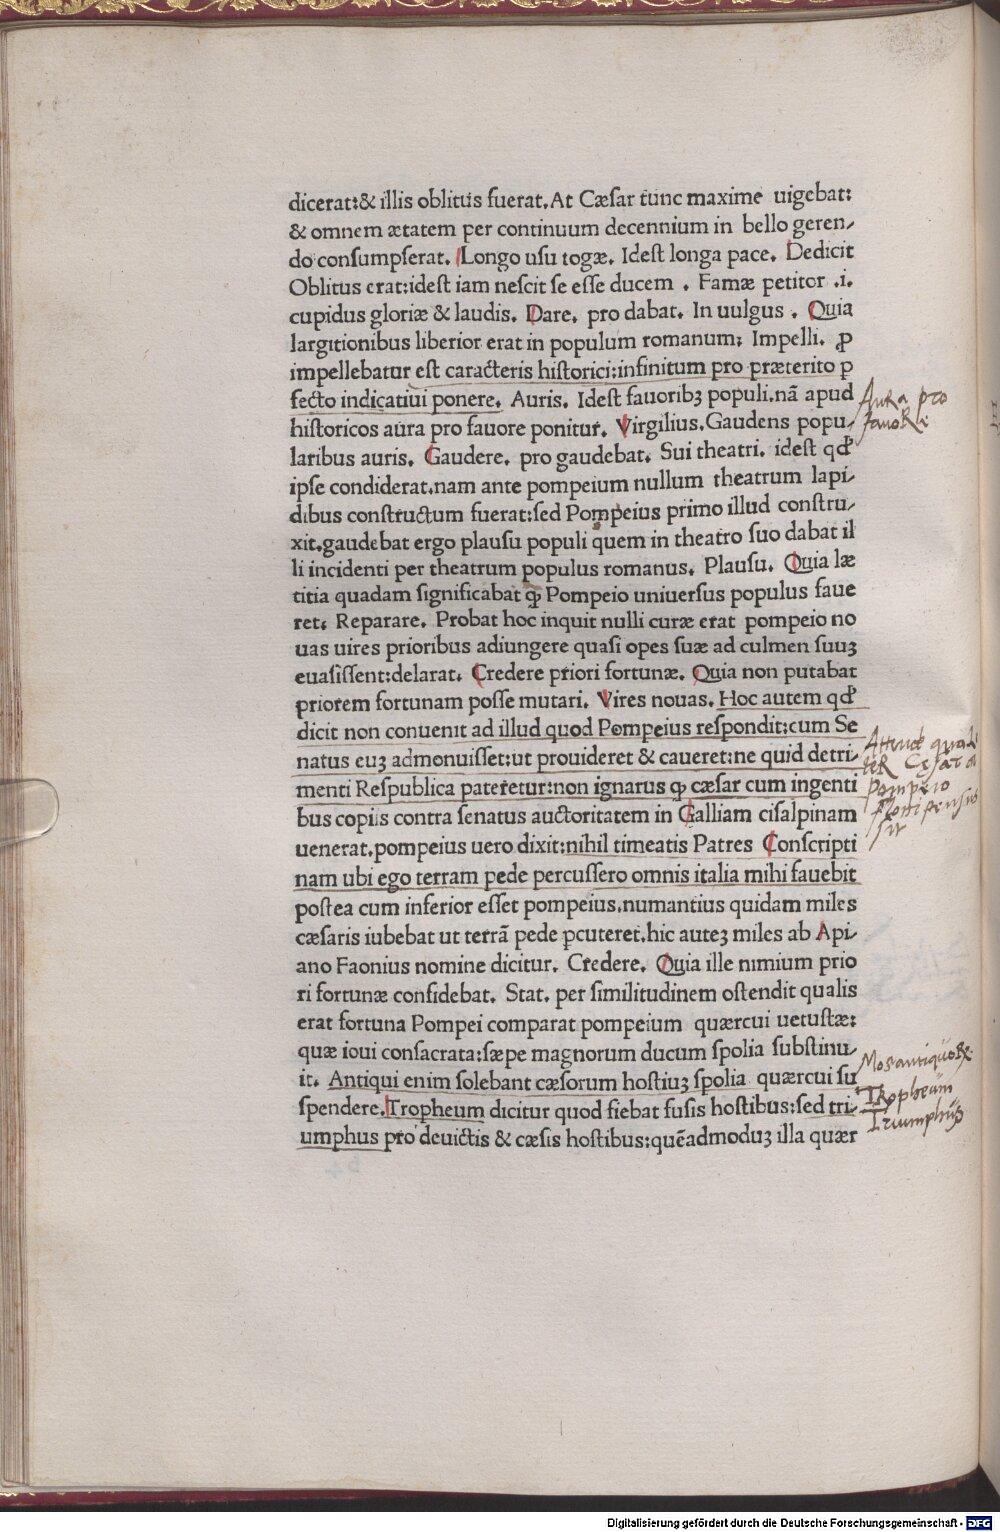 dicerat:& illis oblitus fuerat. At Cæsar tunc maxime uigebat:
& omnem ætatem per continuum decennium in bello geren-
do consumpserat. Longo usu togæ. Idest longa pace. Dedicit
Oblitus erat:idest iam nescit se esse ducem . Famæ petitor .i.
cupidus gloriæ & laudis. Dare. pro dabat. In uulgus . Quia
largitionibus liberior erat in populum romanum: Impelli. ꝓ
impellebatur est caracteris historici:infinitum pro præterito ꝑ
fecto indicatiui ponere. Auris. Idest fauoribꝫ populi.nã apud
historicos aura pro fauore ponitur. Virgilius.Gaudens popu-
laribus auris. Gaudere. pro gaudebat. Sui theatri. idest qđ
ipse condiderat.nam ante pompeium nullum theatrum lapi-
dibus constructum fuerat:sed Pompeius primo illud constru-
xit.gaudebat ergo plausu populi quem in theatro suo dabat il
li incidenti per theatrum populus romanus. Plausu. Quia læ
titia quadam significabat ꝙ Pompeio uniuersus populus faue
ret. Reparare. Probat hoc inquit nulli curæ erat pompeio no
uas uires prioribus adiungere quasi opes suæ ad culmen suuꝫ
euasissent:delarat. Credere priori fortunæ. Quia non putabat
priorem fortunam posse mutari. Vires nouas. Hoc autem qđ
dicit non conuenit ad illud quod Pompeius respondit:cum Se
natus euꝫ admonuisset:ut prouideret & caueret:ne quid detri-
menti Respublica pateretur:non ignarus ꝙ cæsar cum ingenti
bus copiis contra senatus auctoritatem in Galliam cisalpinam
uenerat.pompeius uero dixit:nihil timeatis Patres Conscripti
nam ubi ego terram pede percussero omnis italia mihi fauebit
postea cum inferior esset pompeius.numantius quidam miles
cæsaris iubebat ut terrã pede ꝑcuteret.hic auteꝫ miles ab Api-
ano Faonius nomine dicitur. Credere. Quia ille nimium prio
ri fortunæ confidebat. Stat. per similitudinem ostendit qualis
erat fortuna Pompei comparat pompeium quærcui uetustæ:
quæ ioui consacrata:sæpe magnorum ducum spolia substinu-
it. Antiqui enim solebant cæsorum hostiuꝫ spolia quærcui su
spendere.Tropheum dicitur quod fiebat fusis hostibus:sed tri-
umphus pro deuictis & cæsis hostibus:quẽadmoduꝫ illa quær
Aura pro
fauore
Attende quali
ter Cęsar a
pompeio
sit
Mos antiquoꝝ
Tropheum
Triumphuꝫ
Digitalisierung gefördert durch die Deutsche Forschungsgemeinschaft - DFG